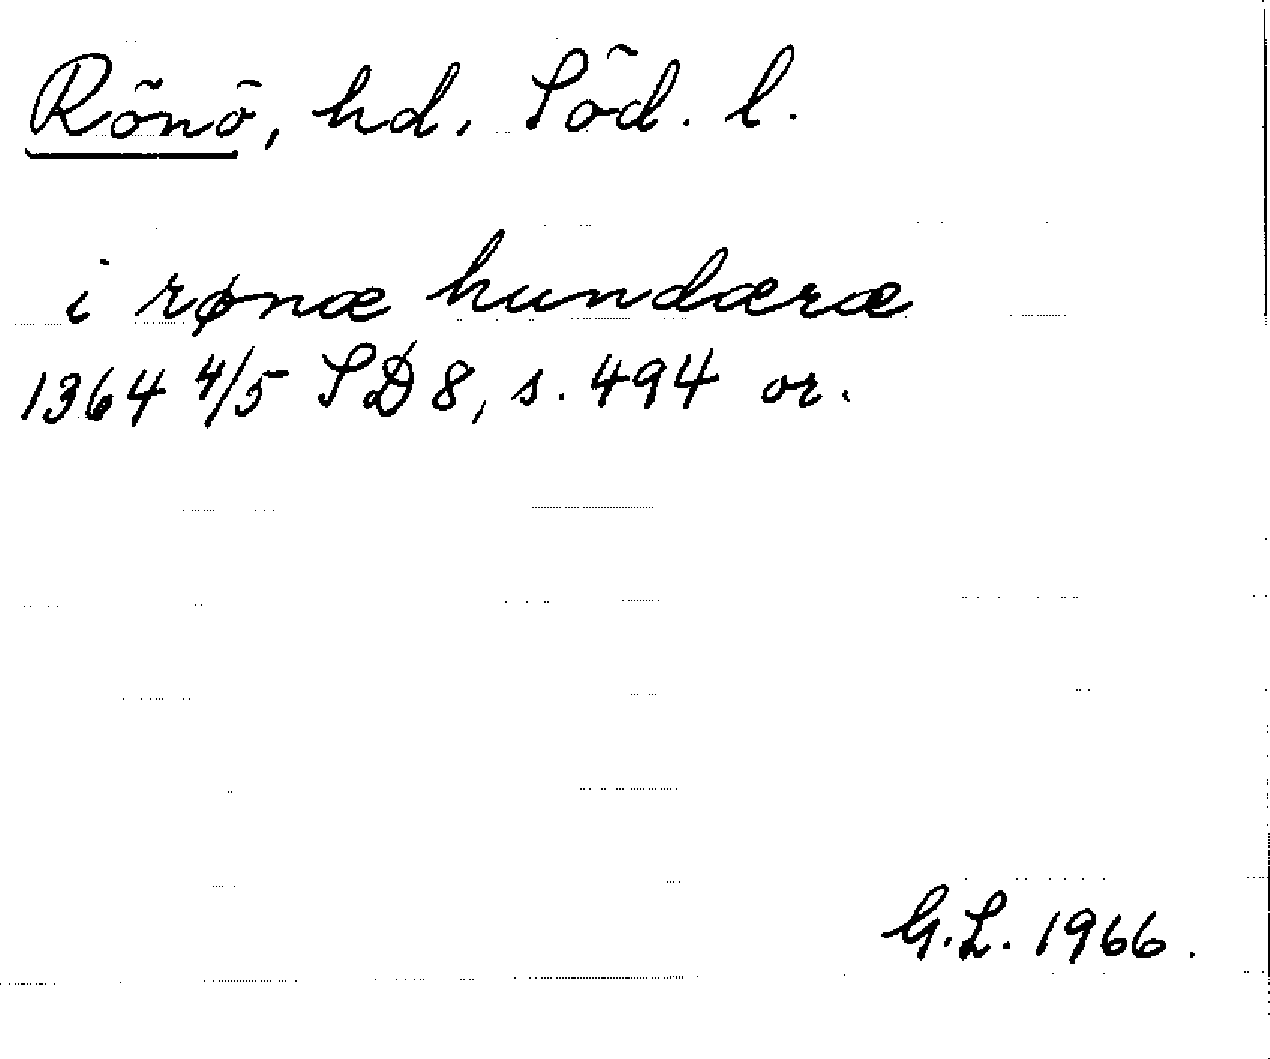 Rönö, hd, Söd. l.
i rønæ hundæræ
1364 4/5 SD 8, s. 494 or.
G.L. 1966.